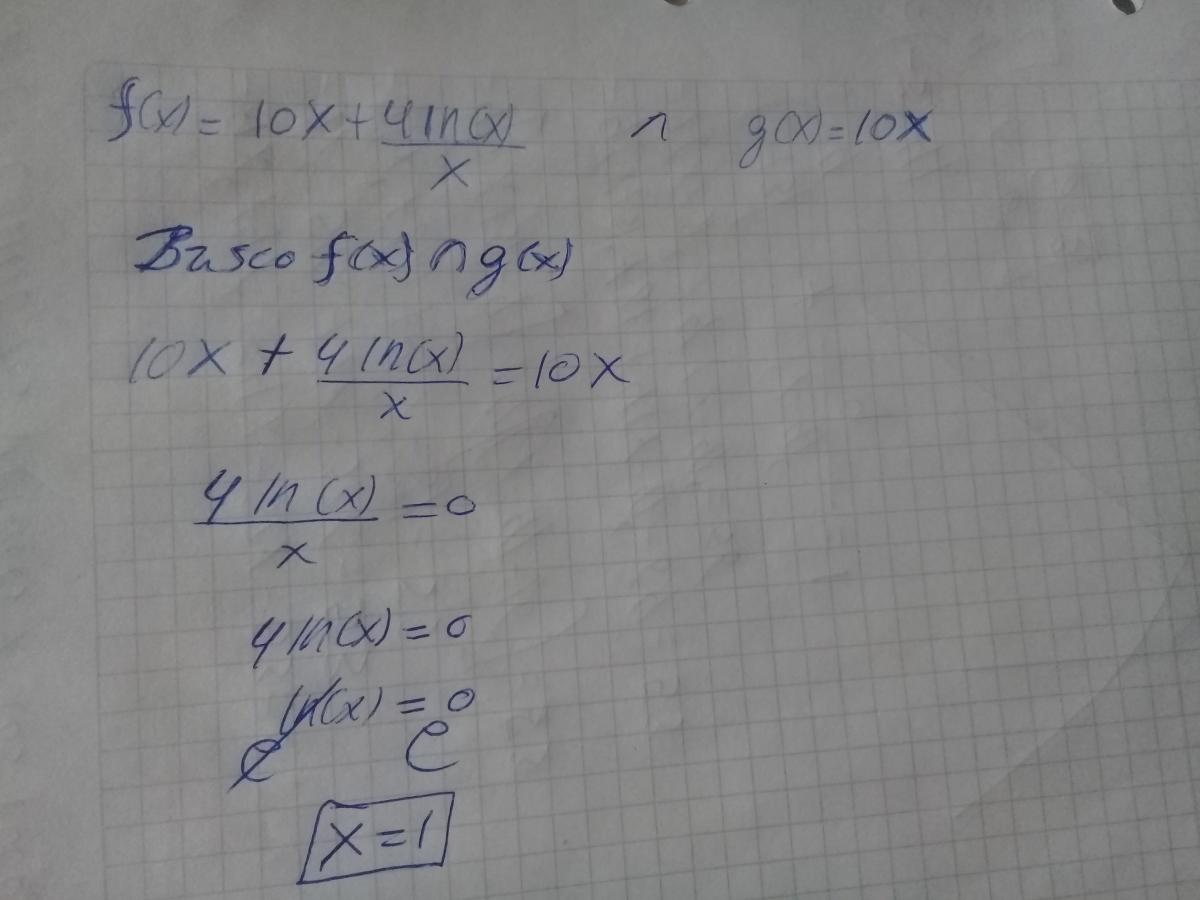 f(x) = 10x + 4 ln(x) / x ∩ g(x) = 10x
Busco f(x) ∩ g(x)
10x + 4 ln(x) / x = 10x
4 ln(x) / x = 0
4 ln(x) = 0
ln(x) = 0
e e
x = 1